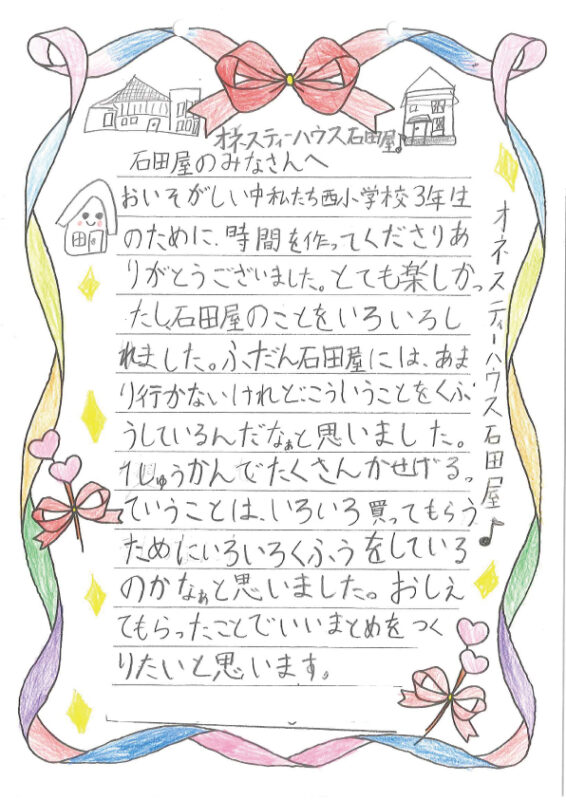 オネスティーハウス石田屋♪
石田屋のみなさんへ
おいそがしい中私たち西小学校3年生
のために、時間を作ってくださりあ
りがとうございました。とても楽しかっ
たし、石田屋のことをいろいろし
れました。ふだん石田屋には、あま
り行かないけれど、こういうことをくふ
うしているんだなぁと思いました。
1しゅうかんでたくさんかせげるっ
ていうことは、いろいろ買ってもらう
ためにいろいろくふうをしている
のかなぁと思いました。おしえ
てもらったことでいいまとめをつく
りたいと思います。
オネスティーハウス石田屋♪